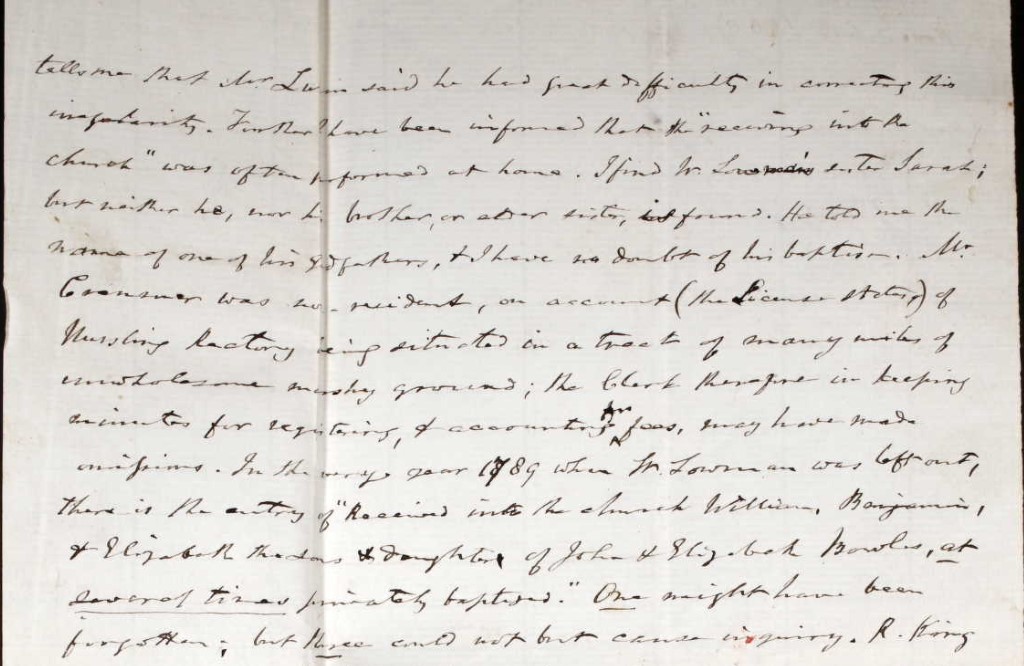 tells me that Mr. Lwin said he had great difficulty in correcting this
irregularity. Further I have been informed that the "receiving into the
church" was often performed at home. I find W. Lowman's sister Sarah;
but neither he, nor his brother, or elder sister, is found. He told me the
name of one of his godfathers, & I have no doubt of his baptism. Mr.
was non-resident, on account (the License states,) of
Nursling Rectory being situated in a tract of many miles of
unwholesome marshy ground; the Clerk therefore in keeping
minutes for registering, & accounting for fees, may have made
omissions. In the very year 1789 when W. Lowman was left out,
there is the entry of "Received into the church William, Benjamin,
& Elizabeth the sons & daughter of John & Elizabeth Bowles, at
several times privately baptised." One might have been
forgotten; but three could not but cause inquiry. R. King